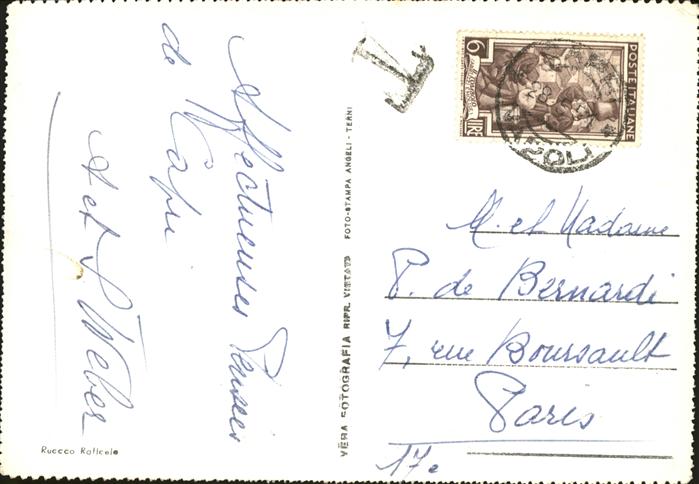 Affectueuses Pensées
de Capri
A et S Weber
Ruocco Raffaele
VERA FOTOGRAFIA RIPR. VIETATA FOTO-STAMPA ANGELI - TERNI
T
6
LIRE
POSTE ITALIANE
NAPOLI
M. et Madame
P. de Bernardi
7, rue Boursault
Paris
17e